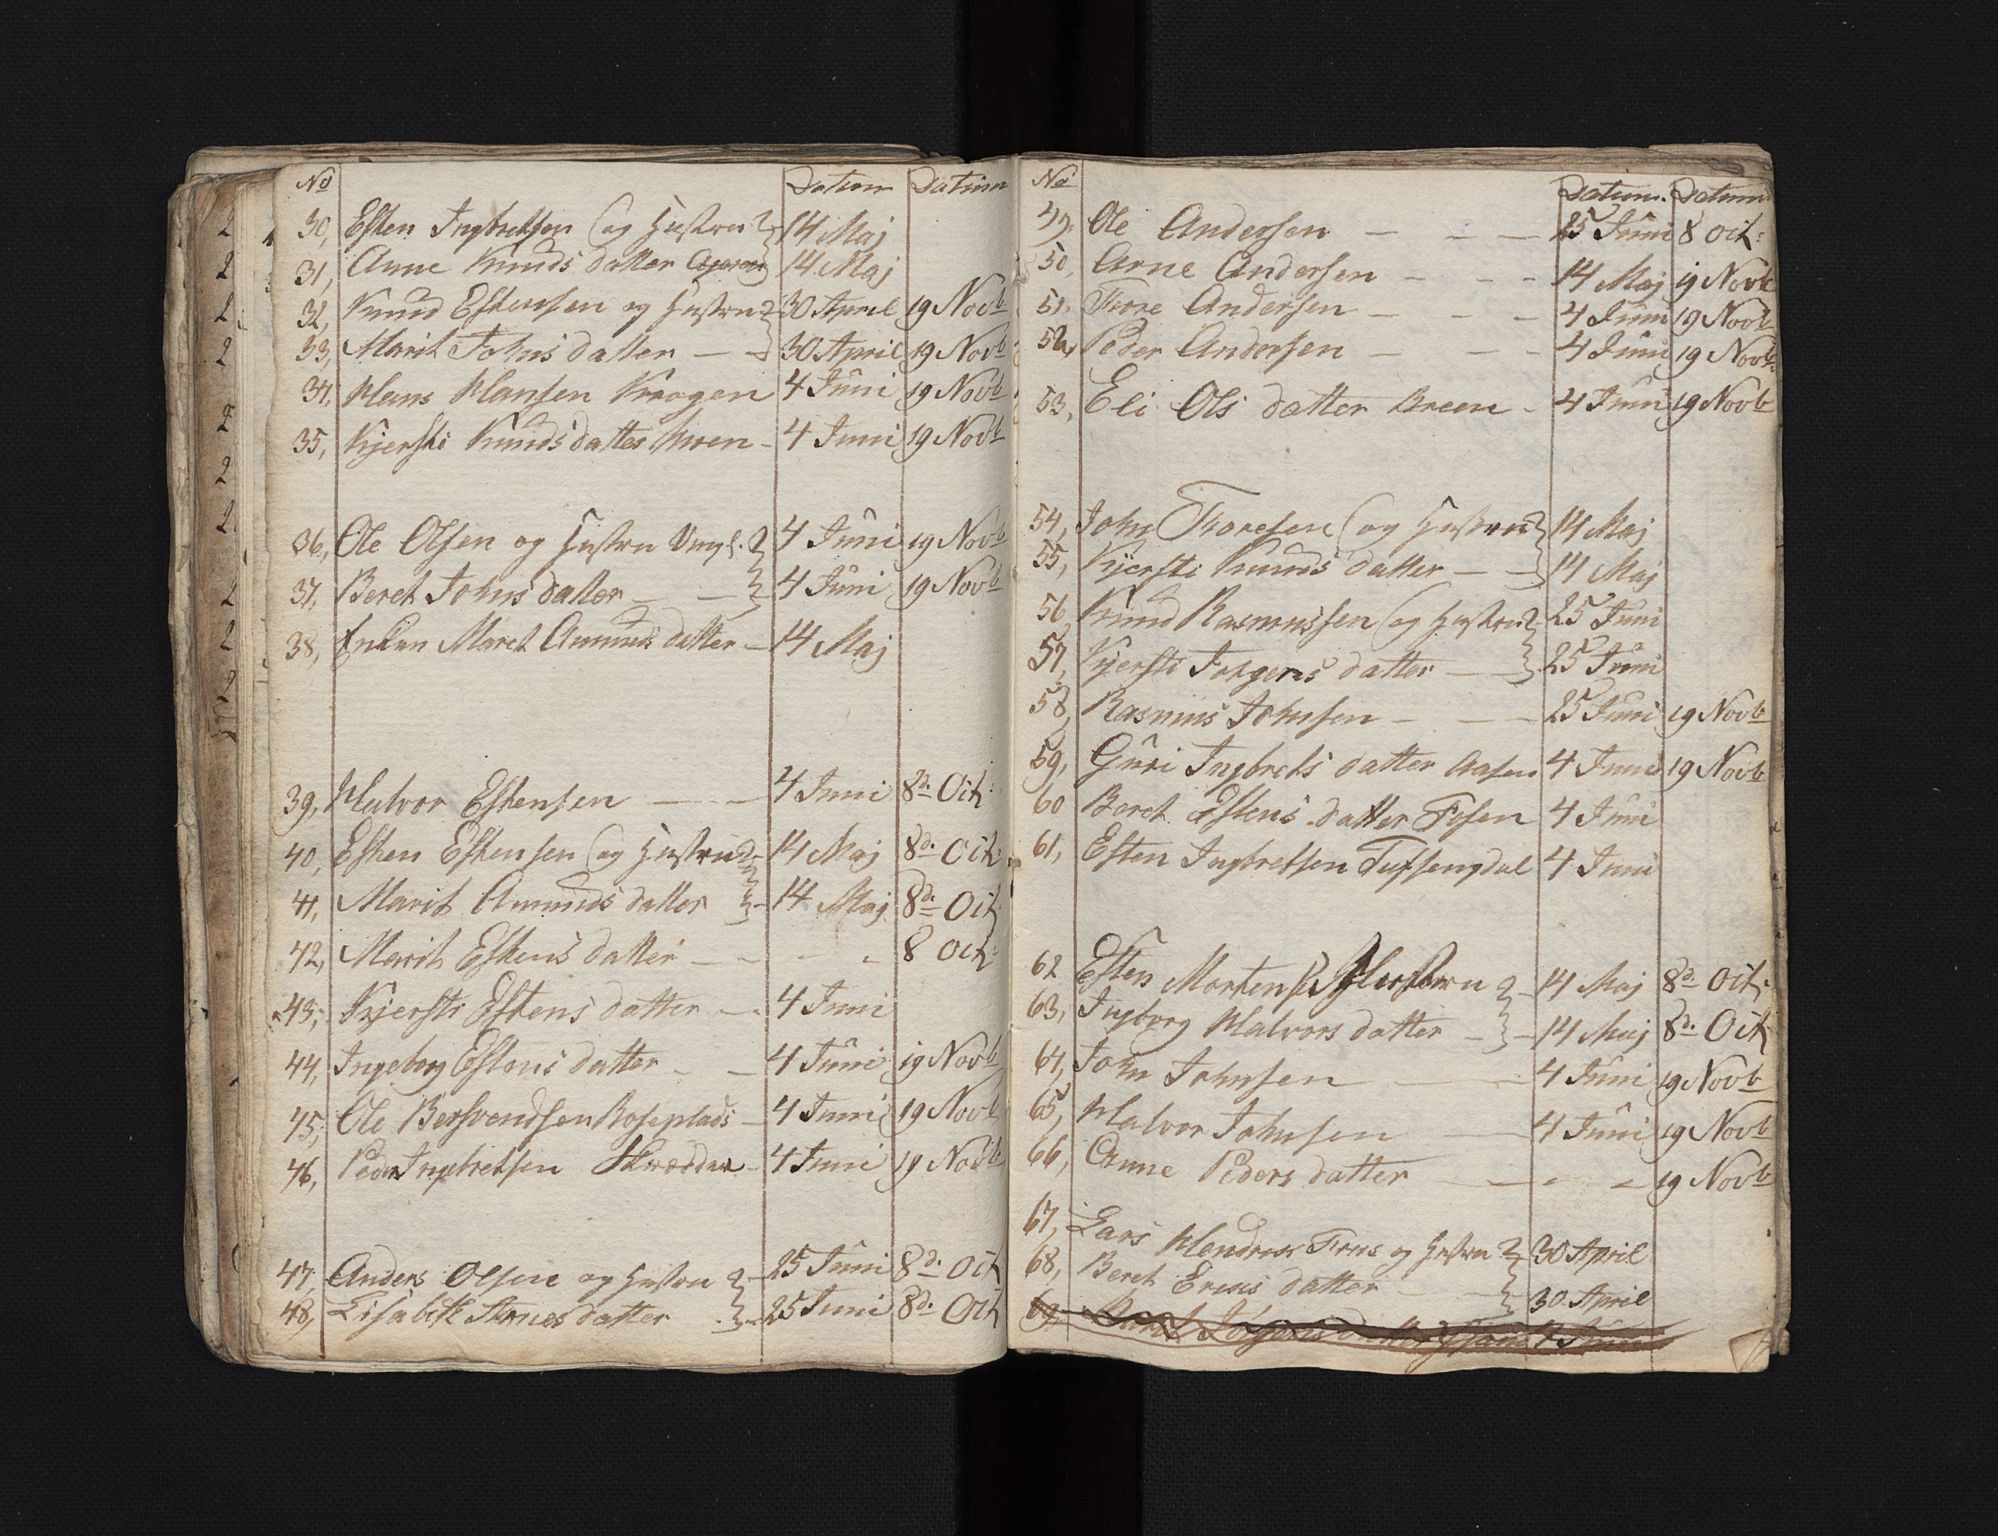 No Datum Datum
30, Esten Ingbretsen (og Hustru 14 Maj
31, Anne Knuds datter 14 Maj
32, Knud Estensen og Hustru 30 April 19 Novb
33, Marit Johns datter — 30 April 19 Novb
34, Hans Hansen Krogen 4 Juni 19 Novb
35, Kjersti Knuds datter Moen - 4 Juni 19 Novb
36, Ole Olsen og Hustru 4 Juni 19 Novb
37, Beret Johns datter — 4 Juni 19 Novb
38, Enken Maret Amunds datter — 14 Maj
39, Halvor Estensen — 4 Juni 8d. Oct:
40, Esten Estensen (og Hustru 14 Maj 8d. Oct:
41, Marit Amunds datter 14 Maj 8d. Oct
42, Marit Estens datter — 8 Oct:
43, Kjersti Estens datter — 4 Juni
44, Ingeborg Estens datter — 4 Juni 19 Novb
45, Ole Bersvendsen Roseplads - 4 Juni 19 Novb
46, Peder Ingbretsen Skrædder - 4 Juni 19 Novb
47, Anders Olsen og Hustru 25 Juni 8d. Oct
48, Lisabeth Arnes datter 25 Juni 8d. Oct
No Datum. Datum
49, Ole Andersen — 25 Juni 8 Oct:
50, Arne Andersen — 14 Maj 19 Novb
51, Tore Andersen — 4 Juni 19 Novb
52, Peder Andersen — 4 Juni 19 Novb
53, Eli Ols datter Breen - 4 Juni 19 Novb
54, John Toresen (og Hustru 14 Maj
55, Kjersti Knuds datter — 14 Maj
56, Knud Rasmussen (og Hustru 25 Juni
57, Kjersti Jorgens datter — 25 Juni
58, Rasmus Johnsen — 25 Juni 19 Novb
59, Guri Ingbrets datter Aasen 4 Juni 19 Novb
60 Beret Estens datter Fosen 4 Juni
61, Esten Ingbretsen Tufsengdal 4 Juni
62 Esten Mortensen Hustru 14 Maj 8d. Oct:
63, Ingborg Halvors datter — 14 Maj 8d. Oct
64, John Johnsen — 4 Juni 19 Novb
65, Halvor Johnsen — 4 Juni 19 Novb
66, Anne Peders datter — 19 Novb
67, Lars Hendrichs og Hustru 30 April
68, Beret Erens datter — 30 April
69,